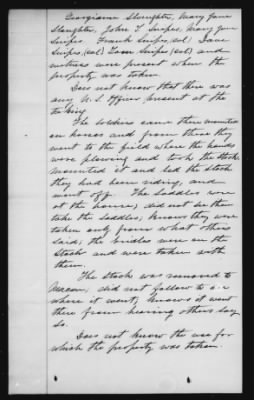 Georgianna Slaughter, Mary Jane
Slaughter, John T. Snipes, Mary Jane
Snipes Frank Snipes (col) Jane
Snipes (col) Tom Snipes (col) and
witness were present when the
property was taken.
Does not know that there was
any U.S. Officer present at the
taking.
The soldiers came there mounted
on horses and from there they
went to the field where the hands
were plowing and took the stock
mounted it and led the stock
they had been riding, and
went off. The saddles were
at the house; did not see them
take the saddles; knows they were
taken only from what others
said; the bridles were on the
stock and were taken with
them.
The stock was removed to
Macon; did not follow to see
where it went; knows it went
there from hearing others say
so.
Does not know the use for
which the property was taken.